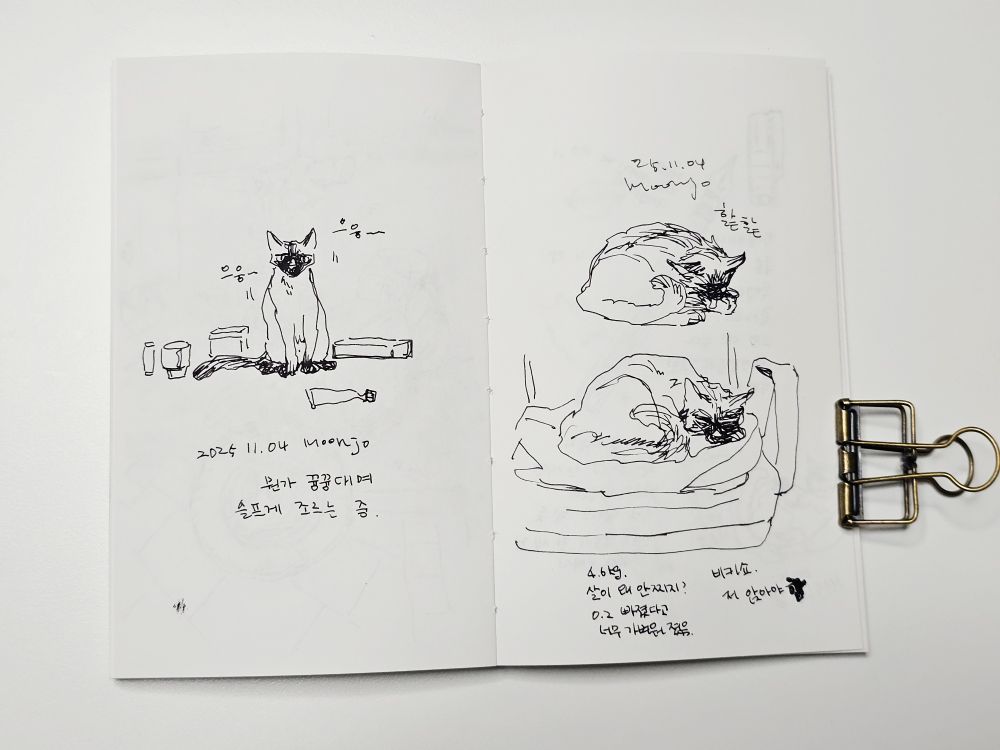 으응~
으응~
2025 11.04 Moonjo
뭔가 꿍꿍대며
슬프게 조르는 중.
25.11.04
Moonjo
핥 핥
4.6kg.
살이 왜 안찌지?
0.2 빠졌다고
너무 가벼워 졌음.
비키쇼.
저 앉아야